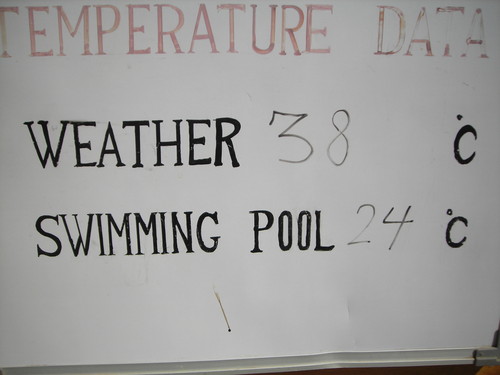 TEMPERATURE DATA
WEATHER 38 °C
SWIMMING POOL 24 °C